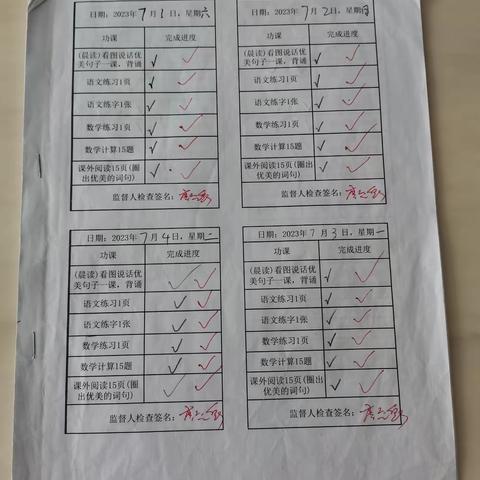 日期：2023年7月1日，星期六
功课 完成进度
(晨读)看图说话优
美句子一课，背诵 ✓ ✓
语文练习1页 ✓ ✓
语文练字1张 ✓ ✓
数学练习1页 ✓ ✓
数学计算15题 ✓ ✓
课外阅读15页(圈
出优美的词句) ✓ ✓
监督人检查签名：
日期：2023年7月2日，星期日
功课 完成进度
(晨读)看图说话优
美句子一课，背诵 ✓ ✓
语文练习1页 ✓ ✓
语文练字1张 ✓ ✓
数学练习1页 ✓ ✓
数学计算15题 ✓ ✓
课外阅读15页(圈
出优美的词句) ✓ ✓
监督人检查签名：
日期：2023年7月4日，星期二
功课 完成进度
(晨读)看图说话优
美句子一课，背诵 ✓ ✓
语文练习1页 ✓ ✓
语文练字1张 ✓ ✓
数学练习1页 ✓ ✓
数学计算15题 ✓ ✓
课外阅读15页(圈
出优美的词句) ✓ ✓
监督人检查签名：
日期：2023年7月3日，星期一
功课 完成进度
(晨读)看图说话优
美句子一课，背诵 ✓ ✓
语文练习1页 ✓ ✓
语文练字1张 ✓ ✓
数学练习1页 ✓ ✓
数学计算15题 ✓ ✓
课外阅读15页(圈
出优美的词句) ✓ ✓
监督人检查签名：